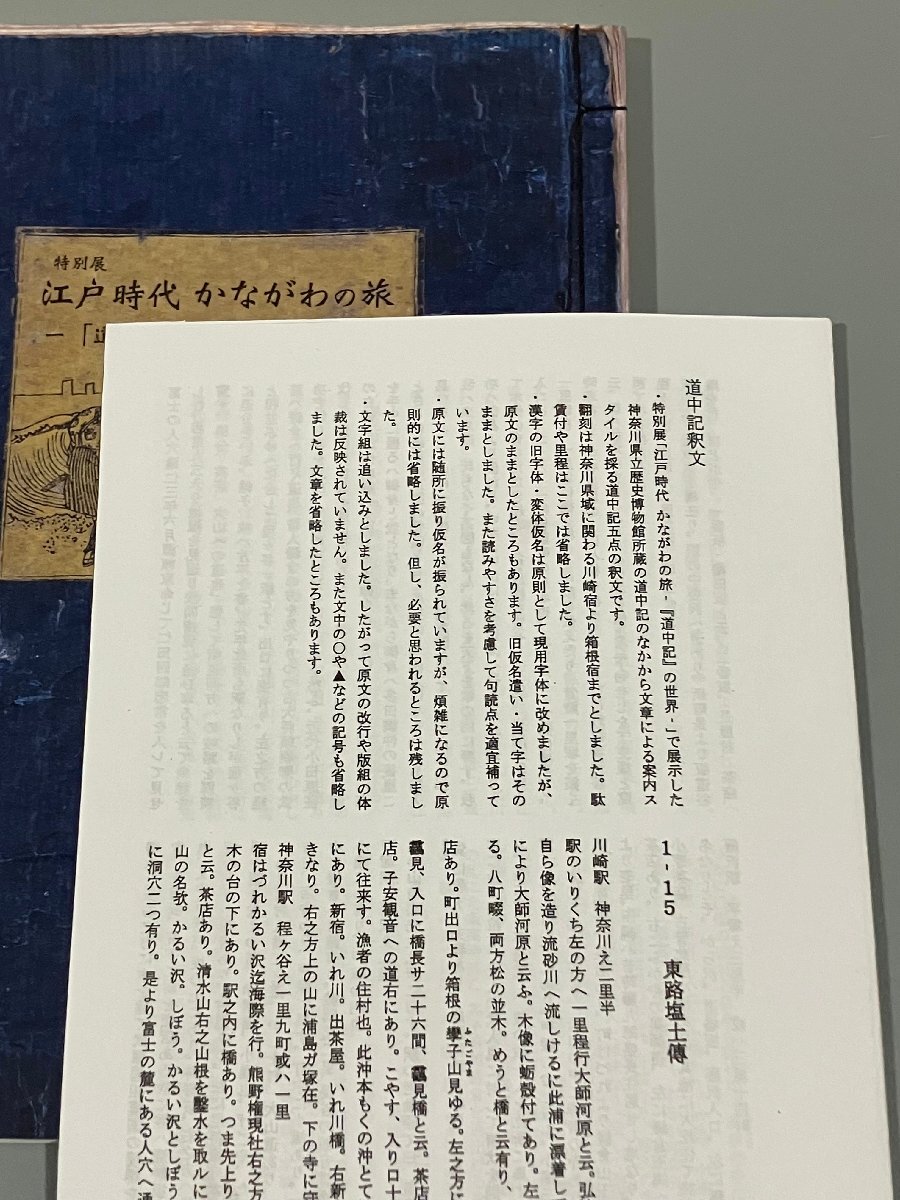 特別展
江戸時代 かながわの旅
道中記釈文
・特別展「江戸時代 かながわの旅-『道中記』の世界-」で展示した
神奈川県立歴史博物館所蔵の道中記のなかから文章による案内ス
タイルを採る道中記五点の釈文です。
・翻刻は神奈川県域に関わる川崎宿より箱根宿までとしました。駄
賃付や里程はここでは省略しました。
・漢字の旧字体・変体仮名は原則として現用字体に改めましたが、
原文のままとしたところもあります。旧仮名遣い・当て字はその
ままとしました。また読みやすさを考慮して句読点を適宜補って
います。
・原文には随所に振り仮名が振られていますが、煩雑になるので原
則的には省略しました。但し、必要と思われるところは残しまし
た。
・文字組は追い込みとしました。したがって原文の改行や版組の体
裁は反映されていません。また文中の〇や▲などの記号も省略し
ました。文章を省略したところもあります。
1-15 東路塩土傳
川崎駅 神奈川え二里半
駅のいりくち左の方へ一里程行大師河原と云。弘
自ら像を造り流砂川へ流しけるに此浦に漂着し
により大師河原と云ふ。木像に蛎殻付てあり。左
る。八町畷、両方松の並木。めうと橋と云有り、
店あり。町出口より箱根の孿子山見ゆる。左之方に
ふたごやま
靍見、入口に橋長サ二十六間、靍見橋と云。茶店
店。子安観音への道右にあり。こやす、入り口十
にて往来す。漁者の住村也。此沖本もくの沖とて
にあり。新宿。いれ川。出茶屋。いれ川橋。右新
きなり。右之方上の山に浦島ガ塚在。下の寺に守
神奈川駅 程ヶ谷え一里九町或ハ一里
宿はづれかるい沢迄海際を行。熊野権現社右之方
木の台の下にあり。駅之内に橋あり。つま先上り
と云。茶店あり。清水山右之山根を鑿水を取ルに
山の名欤。かるい沢。しぼう。かるい沢としぼう
に洞穴二つ有り。是より富士の麓にある人穴へ通